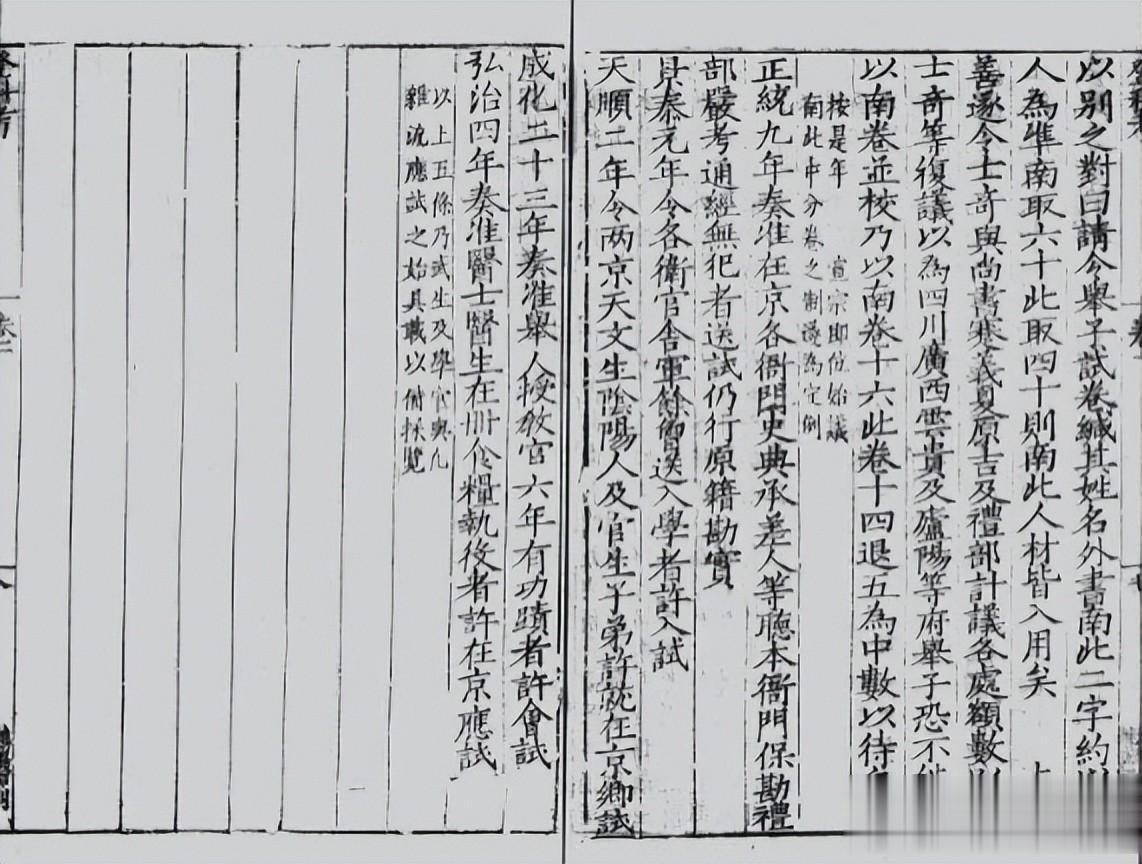 以別之對曰請今舉子試卷緘其姓名外書南北二字約以
人為準南取六十北取四十則南北人材皆入用矣 上
善遂令士奇與尚書蹇義夏原吉及禮部計議各處額數以
士奇等復議以為四川廣西雲貴及廬陽等府舉子恐不
以南卷並校乃以南卷十六北卷十四退五為中數以待
按是年 宣宗即位始議
南北中分卷之制遂為定例
正統九年奏准在京各衙門吏典承差人等聽本衙門保勘禮
部嚴考通經無犯者送試仍行原籍勘實
景泰元年令各衛官舍軍餘曾送入學者許入試
天順二年令两京天文生陰陽人及官生子弟許就在京鄉試
成化二十三年奏准舉人授教官六年有功蹟者許會試
弘治四年奏准醫士醫生在冊食糧執役者許在京應試
以上五條乃武生及學官與凡
雜流應試之始具載以備採覽
登科考
卷二
八